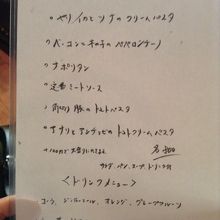 ○ ヤリイカとツナのクリームパスタ
○ ベーコンと木の子のペペロンチーノ
○ ナポリタン
○ 定番ミートソース
○ 豚のトマトパスタ
○ アサリとアンチョビのトマトクリームパスタ
+100円で大盛りに
サラダ、パン、スープ、ドリンク付
<ドリンクメニュー>
コーラ、ジンジャーエール、オレンジ、グレープフルーツ